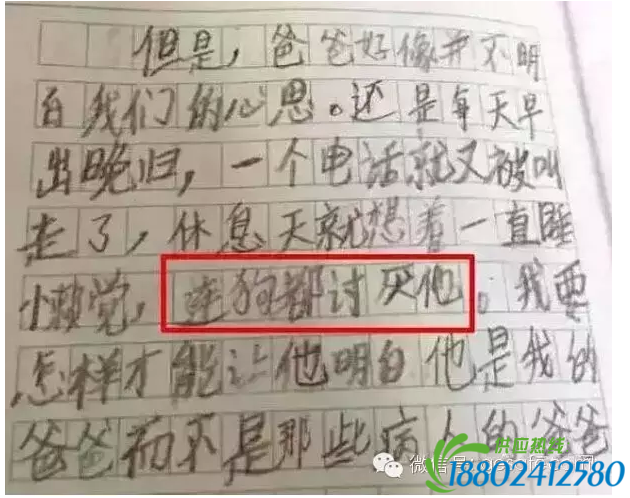 但是，爸爸好像并不明
白我们的心思。还是每天早
出晚归，一个电话就又被叫
走了，休息天就想着一直睡
小懒觉，连狗都讨厌他。我要
怎样才能让他明白他是我的
爸爸而不是那些病人的爸爸
微信号
供应热线
18802412580